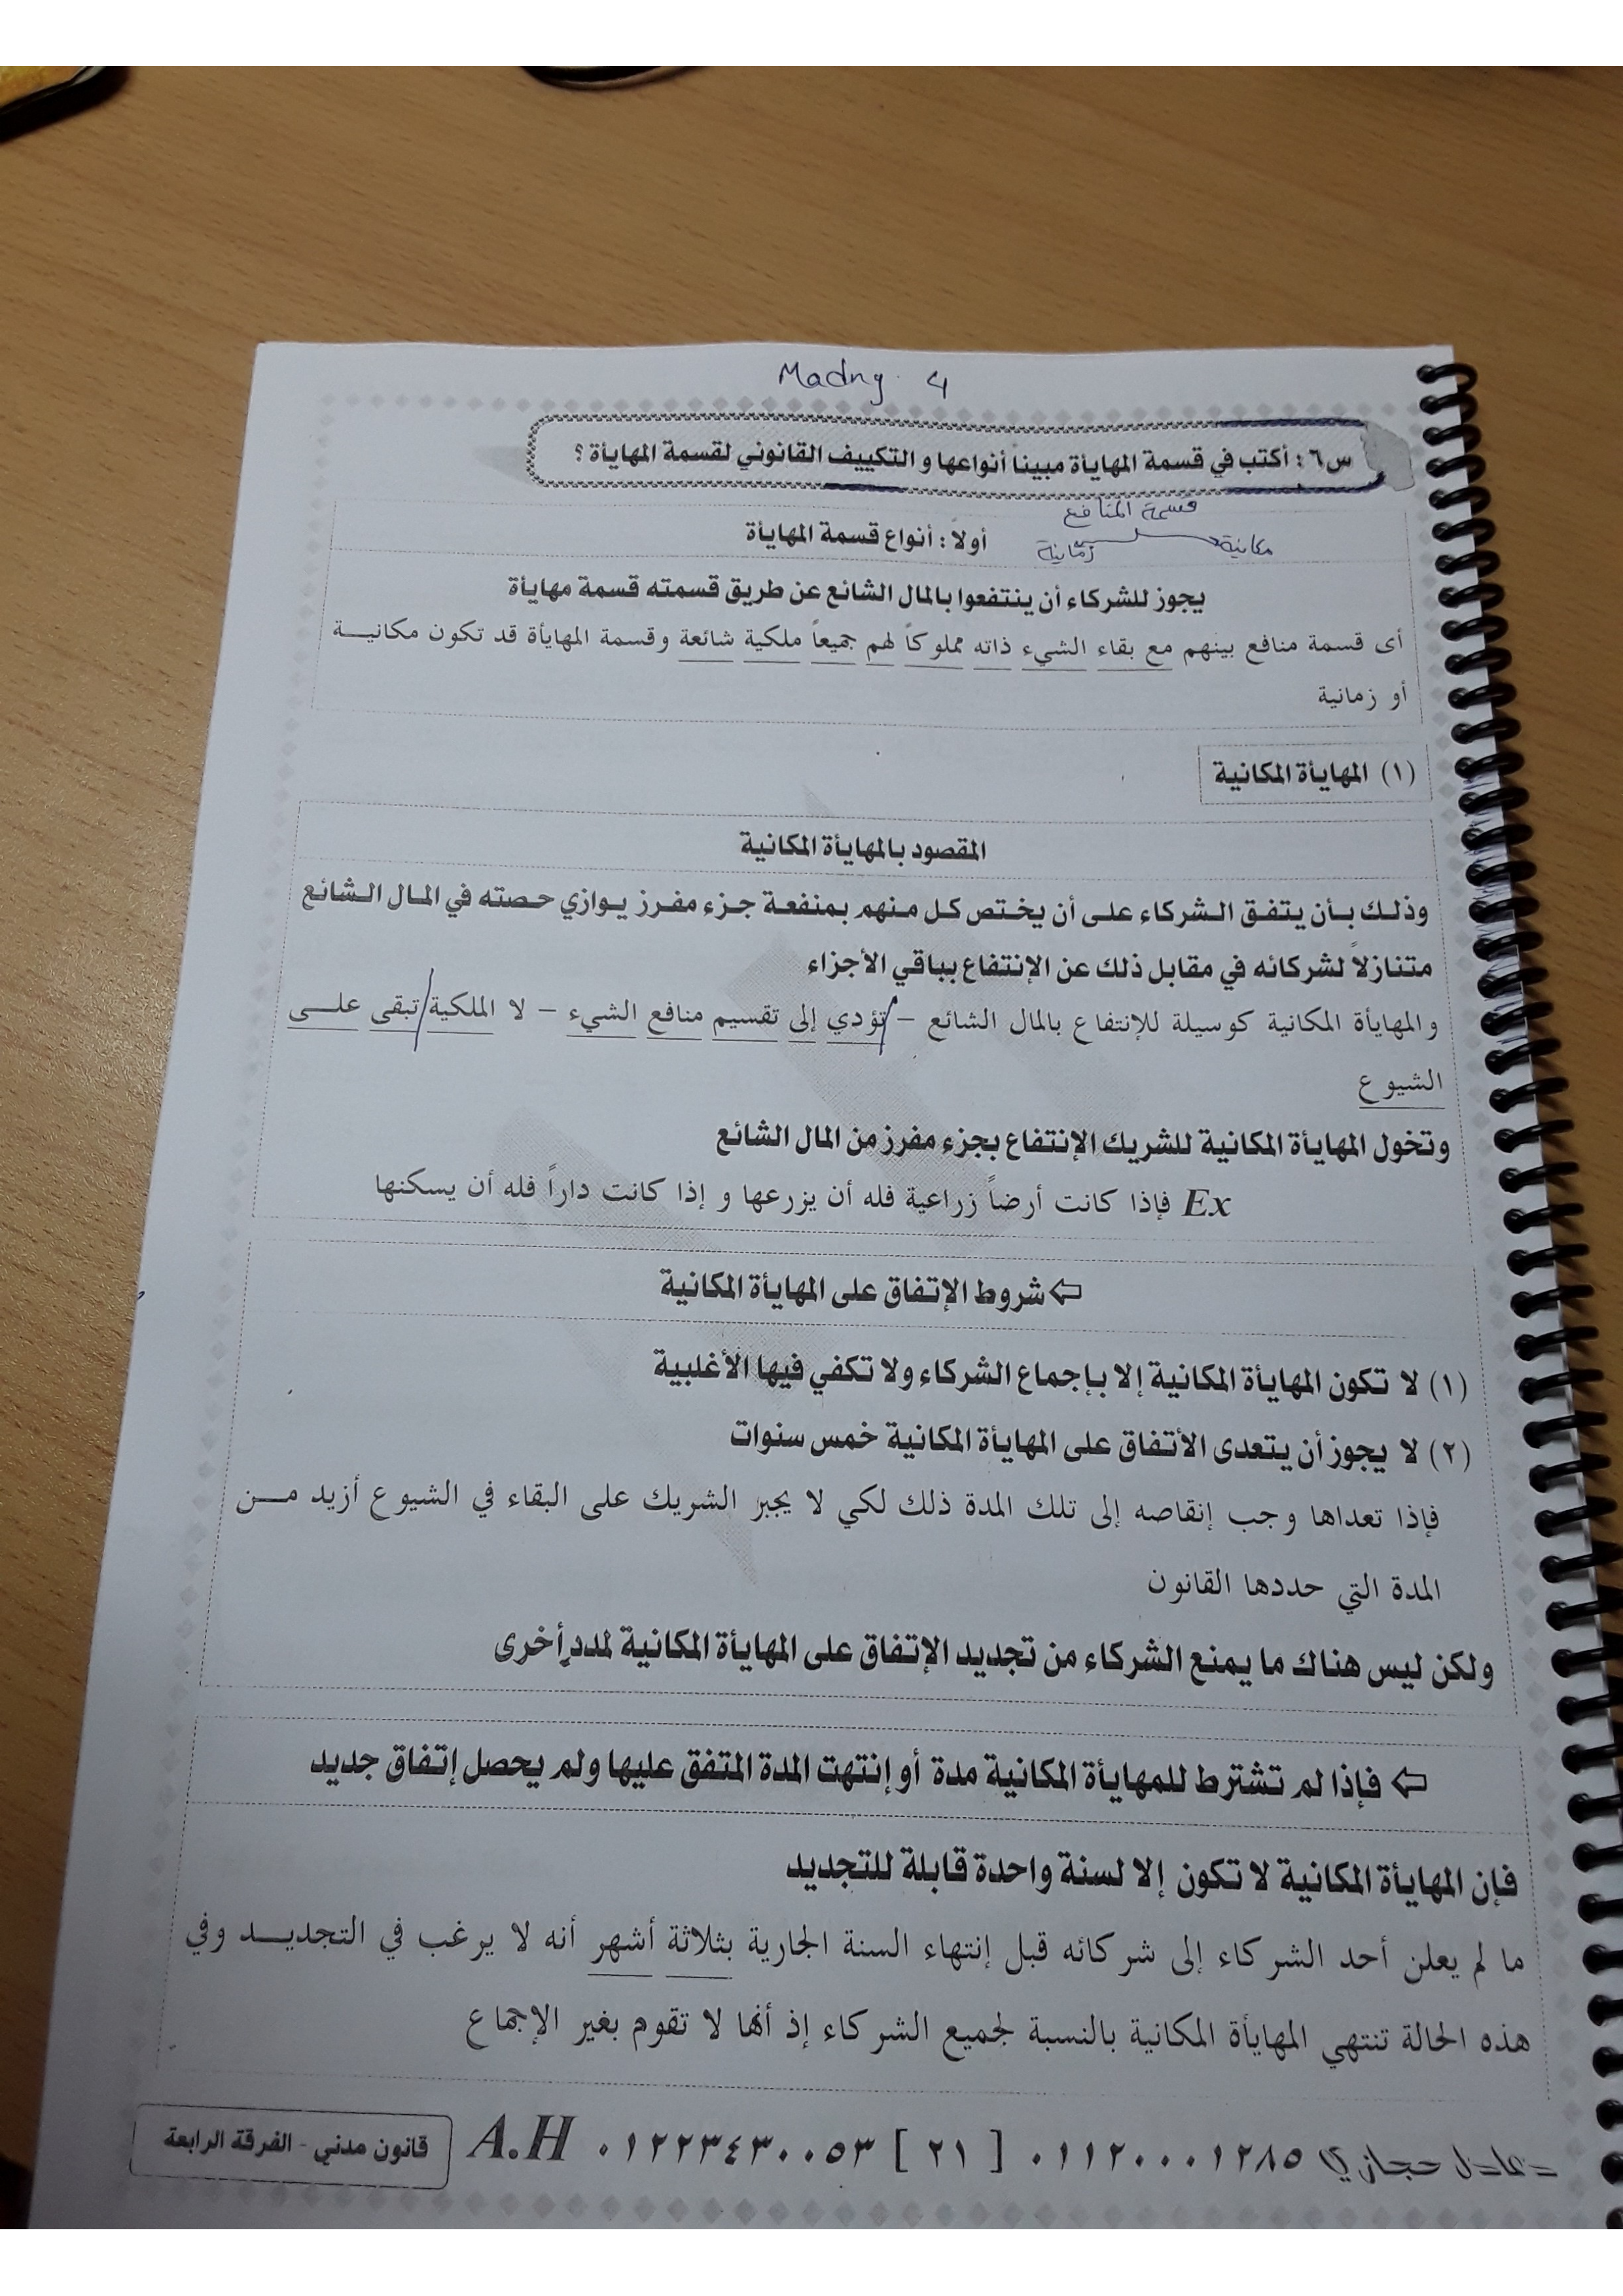 Madny 4
س٦ : أكتب في قسمة المهايأة مبيناً أنواعها و التكييف القانوني لقسمة المهايأة ؟
قسمة المنافع
مكانية زمانية
أولاً : أنواع قسمة المهايأة
يجوز للشركاء أن ينتفعوا بالمال الشائع عن طريق قسمته قسمة مهايأة
أى قسمة منافع بينهم مع بقاء الشيء ذاته مملوكاً لهم جميعاً ملكية شائعة وقسمة المهايأة قد تكون مكانية
أو زمانية
(١) المهايأة المكانية
المقصود بالمهايأة المكانية
وذلك بأن يتفق الشركاء على أن يختص كل منهم بمنفعة جزء مفرز يوازي حصته في المال الشائع
متنازلاً لشركائه في مقابل ذلك عن الإنتفاع بباقي الأجزاء
والمهايأة المكانية كوسيلة للإنتفاع بالمال الشائع – تؤدي إلى تقسيم منافع الشيء – لا الملكية تبقى على
الشيوع
وتخول المهايأة المكانية للشريك الإنتفاع بجزء مفرز من المال الشائع
Ex فإذا كانت أرضاً زراعية فله أن يزرعها و إذا كانت داراً فله أن يسكنها
⇦ شروط الإتفاق على المهايأة المكانية
(١) لا تكون المهايأة المكانية إلا بإجماع الشركاء ولا تكفي فيها الأغلبية
(٢) لا يجوز أن يتعدى الأتفاق على المهايأة المكانية خمس سنوات
فإذا تعداها وجب إنقاصه إلى تلك المدة ذلك لكي لا يجبر الشريك على البقاء في الشيوع أزيد من
المدة التي حددها القانون
ولكن ليس هناك ما يمنع الشركاء من تجديد الإتفاق على المهايأة المكانية لمددٍ أخرى
⇦ فإذا لم تشترط للمهايأة المكانية مدة أو إنتهت المدة المتفق عليها ولم يحصل إتفاق جديد
فإن المهايأة المكانية لا تكون إلا لسنة واحدة قابلة للتجديد
ما لم يعلن أحد الشركاء إلى شركائه قبل إنتهاء السنة الجارية بثلاثة أشهر أنه لا يرغب في التجديد وفي
هذه الحالة تنتهي المهايأة المكانية بالنسبة لجميع الشركاء إذ أنها لا تقوم بغير الإجماع
عادل حجازي ٠١١٢٠٠٠١٢٨٥ [ ٢١ ] ٠١٢٢٣٤٣٠٠٥٣ A.H قانون مدني - الفرقة الرابعة